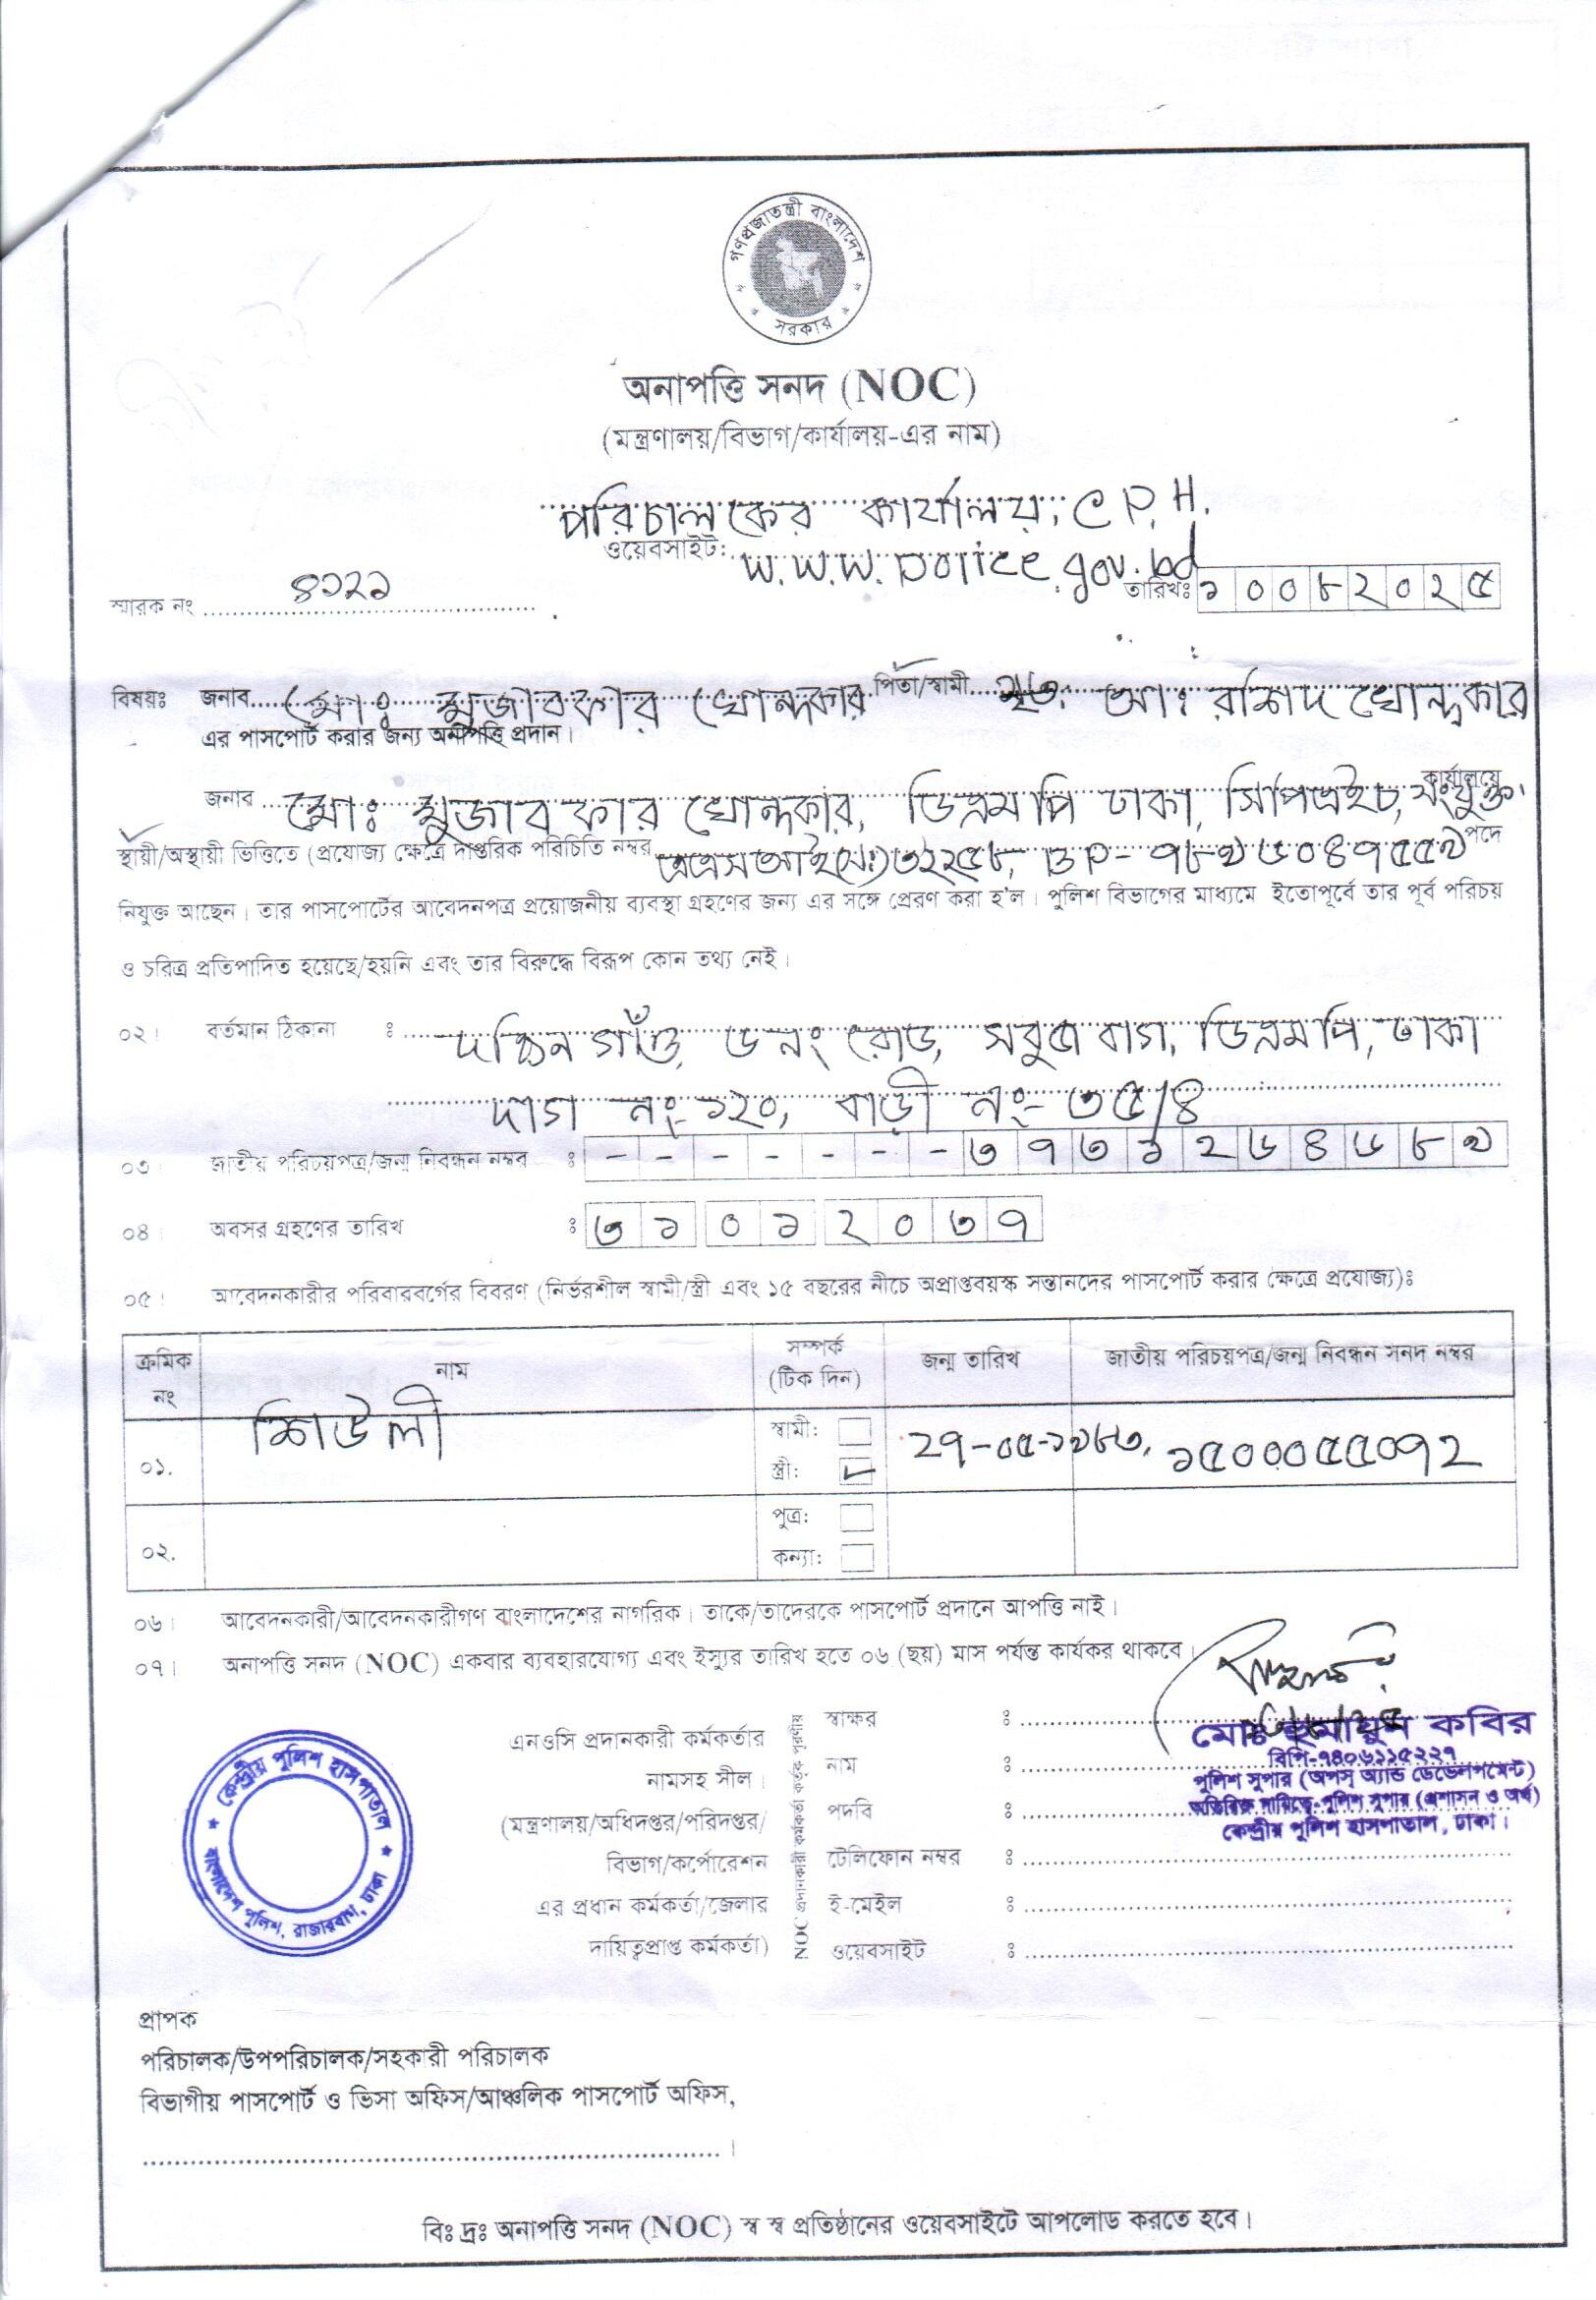 গণপ্রজাতন্ত্রী বাংলাদেশ
সরকার
অনাপত্তি সনদ (NOC)
(মন্ত্রণালয়/বিভাগ/কার্যালয়-এর নাম)
পরিচালকের কার্যালয়, C P. H.
ওয়েবসাইট: W.W.W. police.gov.bd
স্মারক নং ৪১২১ তারিখঃ ১০০৮২০২৫
বিষয়ঃ জনাব মোঃ মুজাবকার খোন্দকার পিতা/স্বামী মৃত. আঃ রশিদ খোন্দকার
এর পাসপোর্ট করার জন্য অনাপত্তি প্রদান।
জনাব মোঃ মুজাবকার খোন্দকার, ডিএমপি ঢাকা, সিপিএইচ, সংযুক্ত। কার্যালয়ে
স্থায়ী/অস্থায়ী ভিত্তিতে (প্রযোজ্য ক্ষেত্রে দাপ্তরিক পরিচিতি নম্বর এএসআই(সঃ)৩২২৫৮, BP- ৭৮৯৬০৪৭৫৫৯ পদে
নিযুক্ত আছেন। তার পাসপোর্টের আবেদনপত্র প্রয়োজনীয় ব্যবস্থা গ্রহণের জন্য এর সঙ্গে প্রেরণ করা হ'ল। পুলিশ বিভাগের মাধ্যমে ইতোপূর্বে তার পূর্ব পরিচয়
ও চরিত্র প্রতিপাদিত হয়েছে/হয়নি এবং তার বিরুদ্ধে বিরূপ কোন তথ্য নেই।
০২। বর্তমান ঠিকানা ঃ দক্ষিন গাঁও, ৬ নং রোড, সবুজ বাগ, ডিএমপি, ঢাকা
দাগ নং-১২০, বাড়ী নং- ৩৫/৪
০৩ জাতীয় পরিচয়পত্র/জন্ম নিবন্ধন নম্বর ঃ - - - - - - - ৩৭৩১২৬৪৬৮৯
০৪। অবসর গ্রহণের তারিখ ঃ ৩১০১২০৩৭
০৫। আবেদনকারীর পরিবারবর্গের বিবরণ (নির্ভরশীল স্বামী/স্ত্রী এবং ১৫ বছরের নীচে অপ্রাপ্তবয়স্ক সন্তানদের পাসপোর্ট করার ক্ষেত্রে প্রযোজ্য)ঃ
ক্রমিক নং নাম সম্পর্ক (টিক দিন) জন্ম তারিখ জাতীয় পরিচয়পত্র/জন্ম নিবন্ধন সনদ নম্বর
০১. শিউলী স্বামী: স্ত্রী: ২৭-০৫-১৯৮৩, ১৫০০০৫৫০৭২
০২. পুত্র: কন্যা:
০৬। আবেদনকারী/আবেদনকারীগণ বাংলাদেশের নাগরিক। তাকে/তাদেরকে পাসপোর্ট প্রদানে আপত্তি নাই।
০৭। অনাপত্তি সনদ (NOC) একবার ব্যবহারযোগ্য এবং ইস্যুর তারিখ হতে ০৬ (ছয়) মাস পর্যন্ত কার্যকর থাকবে।
কেন্দ্রীয় পুলিশ হাসপাতাল
বাংলাদেশ পুলিশ, রাজারবাগ, ঢাকা
এনওসি প্রদানকারী কর্মকর্তার
নামসহ সীল।
(মন্ত্রণালয়/অধিদপ্তর/পরিদপ্তর/
বিভাগ/কর্পোরেশন
এর প্রধান কর্মকর্তা/জেলার
দায়িত্বপ্রাপ্ত কর্মকর্তা)
NOC প্রদানকারী কর্মকর্তা কর্তৃক পূরণীয়
স্বাক্ষর ঃ
নাম ঃ
পদবি ঃ
টেলিফোন নম্বর ঃ
ই-মেইল ঃ
ওয়েবসাইট ঃ
মোঃ হুমায়ুন কবির
বিপি-৭৪০৬১১৫২২৭
পুলিশ সুপার (অপস্ অ্যান্ড ডেভেলপমেন্ট)
অতিরিক্ত দায়িত্বে-পুলিশ সুপার (প্রশাসন ও অর্থ)
কেন্দ্রীয় পুলিশ হাসপাতাল, ঢাকা।
প্রাপক
পরিচালক/উপপরিচালক/সহকারী পরিচালক
বিভাগীয় পাসপোর্ট ও ভিসা অফিস/আঞ্চলিক পাসপোর্ট অফিস,
বিঃ দ্রঃ অনাপত্তি সনদ (NOC) স্ব স্ব প্রতিষ্ঠানের ওয়েবসাইটে আপলোড করতে হবে।